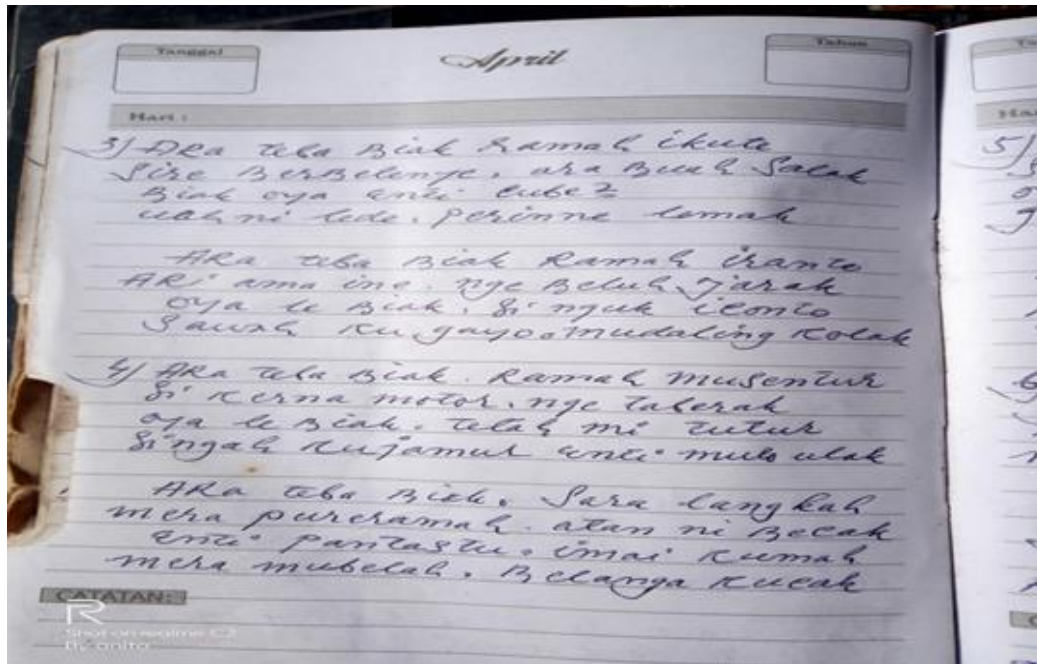 Tanggal
April
Tahun
Hari :
3/ ARa teba Biak Ramah ikute
Sire BerBelenye. ara Buah Salak
Biak oya enti cube2
uah ni lede. perinne lemak
ARa teba Biak Ramah iranto
ARi ama ine. nge Beluh Jarak
oya le Biak. Si nguk iconto
Sawah ku gayo. mudaling Kolak
4/ ARa teba Biak. Ramah musentur
Si Kerna motor. nge taberak
oya le Biak. telah mi tutur
Singah kujamur enti mulo ulak
ARa teba Biek. Sara langkah
mera pureramah. atan ni Becak
enti pantastu. imai kumah
mera mubelah. Belanga kucak
CATATAN:
5/
R
Shot on realme C2
By anita